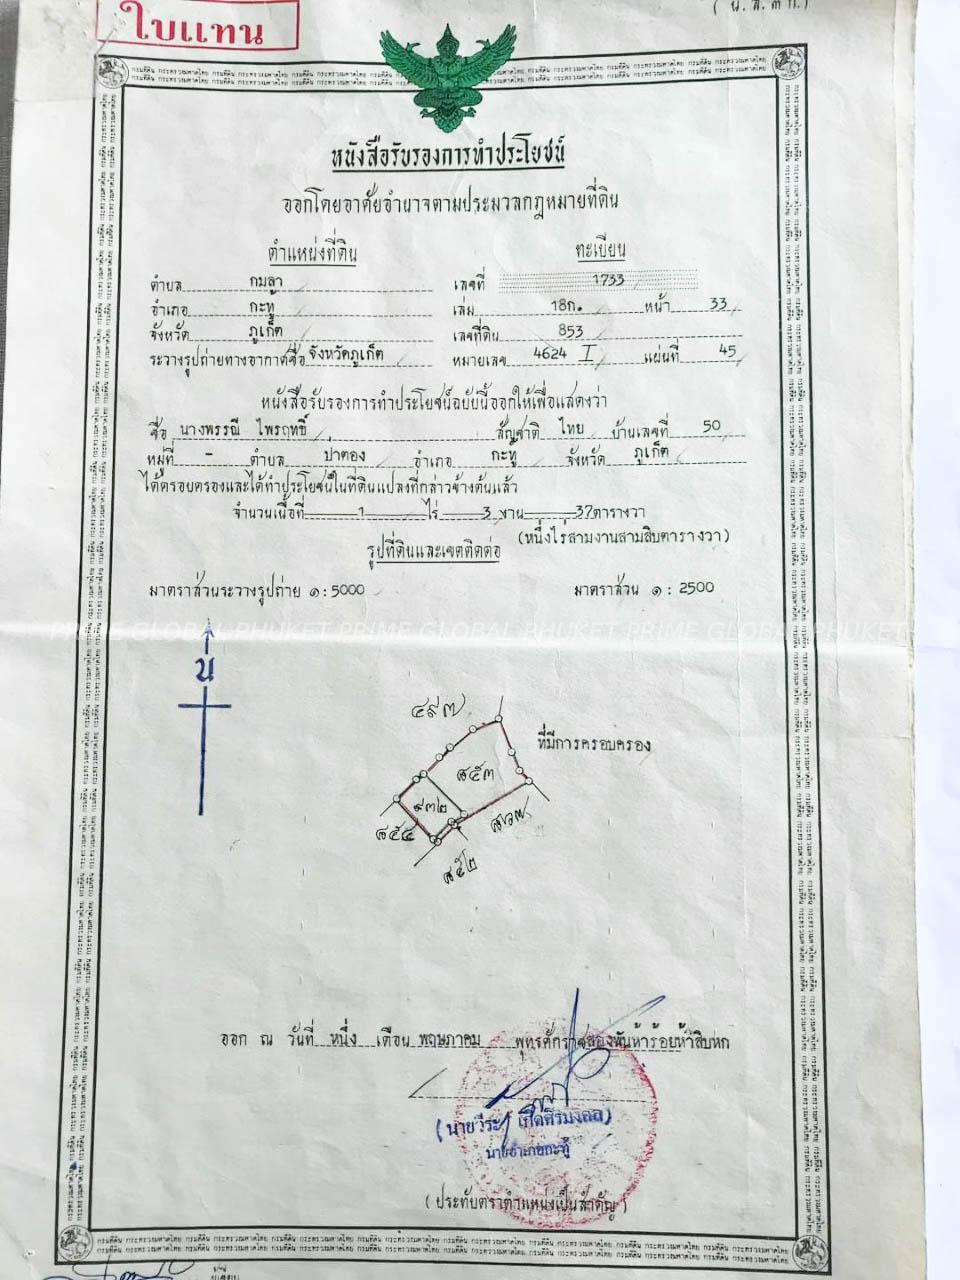 ( น.ส.๓ ก.)
ใบแทน
หนังสือรับรองการทำประโยชน์
ออกโดยอาศัยอำนาจตามประมวลกฎหมายที่ดิน
ตำแหน่งที่ดิน ทะเบียน
ตำบล กมลา เลขที่ 1733
อำเภอ กะทู้ เล่ม 18ก. หน้า 33
จังหวัด ภูเก็ต เลขที่ดิน 853
ระวางรูปถ่ายทางอากาศชื่อ จังหวัดภูเก็ต หมายเลข 4624 I แผ่นที่ 45
หนังสือรับรองการทำประโยชน์ฉบับนี้ออกให้เพื่อแสดงว่า
ชื่อ นางพรรณี ไพรฤทธิ์ สัญชาติ ไทย บ้านเลขที่ 50
หมู่ที่ - ตำบล ป่าตอง อำเภอ กะทู้ จังหวัด ภูเก็ต
ได้ครอบครองและได้ทำประโยชน์ในที่ดินแปลงที่กล่าวข้างต้นแล้ว
จำนวนเนื้อที่ 1 ไร่ 3 งาน 37 ตารางวา
(หนึ่งไร่สามงานสามสิบตารางวา)
รูปที่ดินและเขตติดต่อ
มาตราส่วนระวางรูปถ่าย ๑ : 5000 มาตราส่วน ๑ : 2500
PRIME GLOBAL PHUKET PRIME GLOBAL PHUKET PRIME GLOBAL PHUKET
น
๔๙๗
ที่มีการครอบครอง
๘๕๓
๙๓๒
๘๕๔
๘๕๒
ออก ณ วันที่ หนึ่ง เดือน พฤษภาคม พุทธศักราช สองพันห้าร้อยห้าสิบหก
(นายวีระ เกิดศิริมงคล)
นายอำเภอกะทู้
( ประทับตราตำแหน่งเป็นสำคัญ )